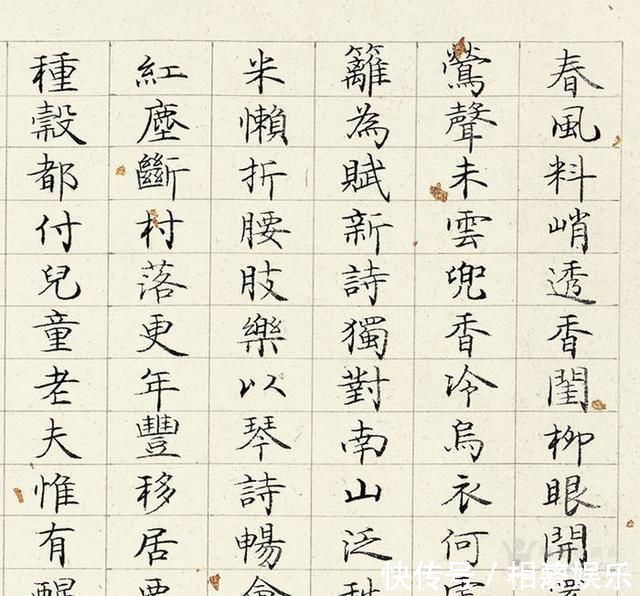 春風料峭透香閨柳眼開還
鶯聲未雲兜香冷烏衣何
籬為賦新詩獨對南山泛
米懶折腰肢樂以琴詩暢
紅塵斷村落更年豐移居
種穀都付兒童老夫惟有醒
快传号/相聚娱乐